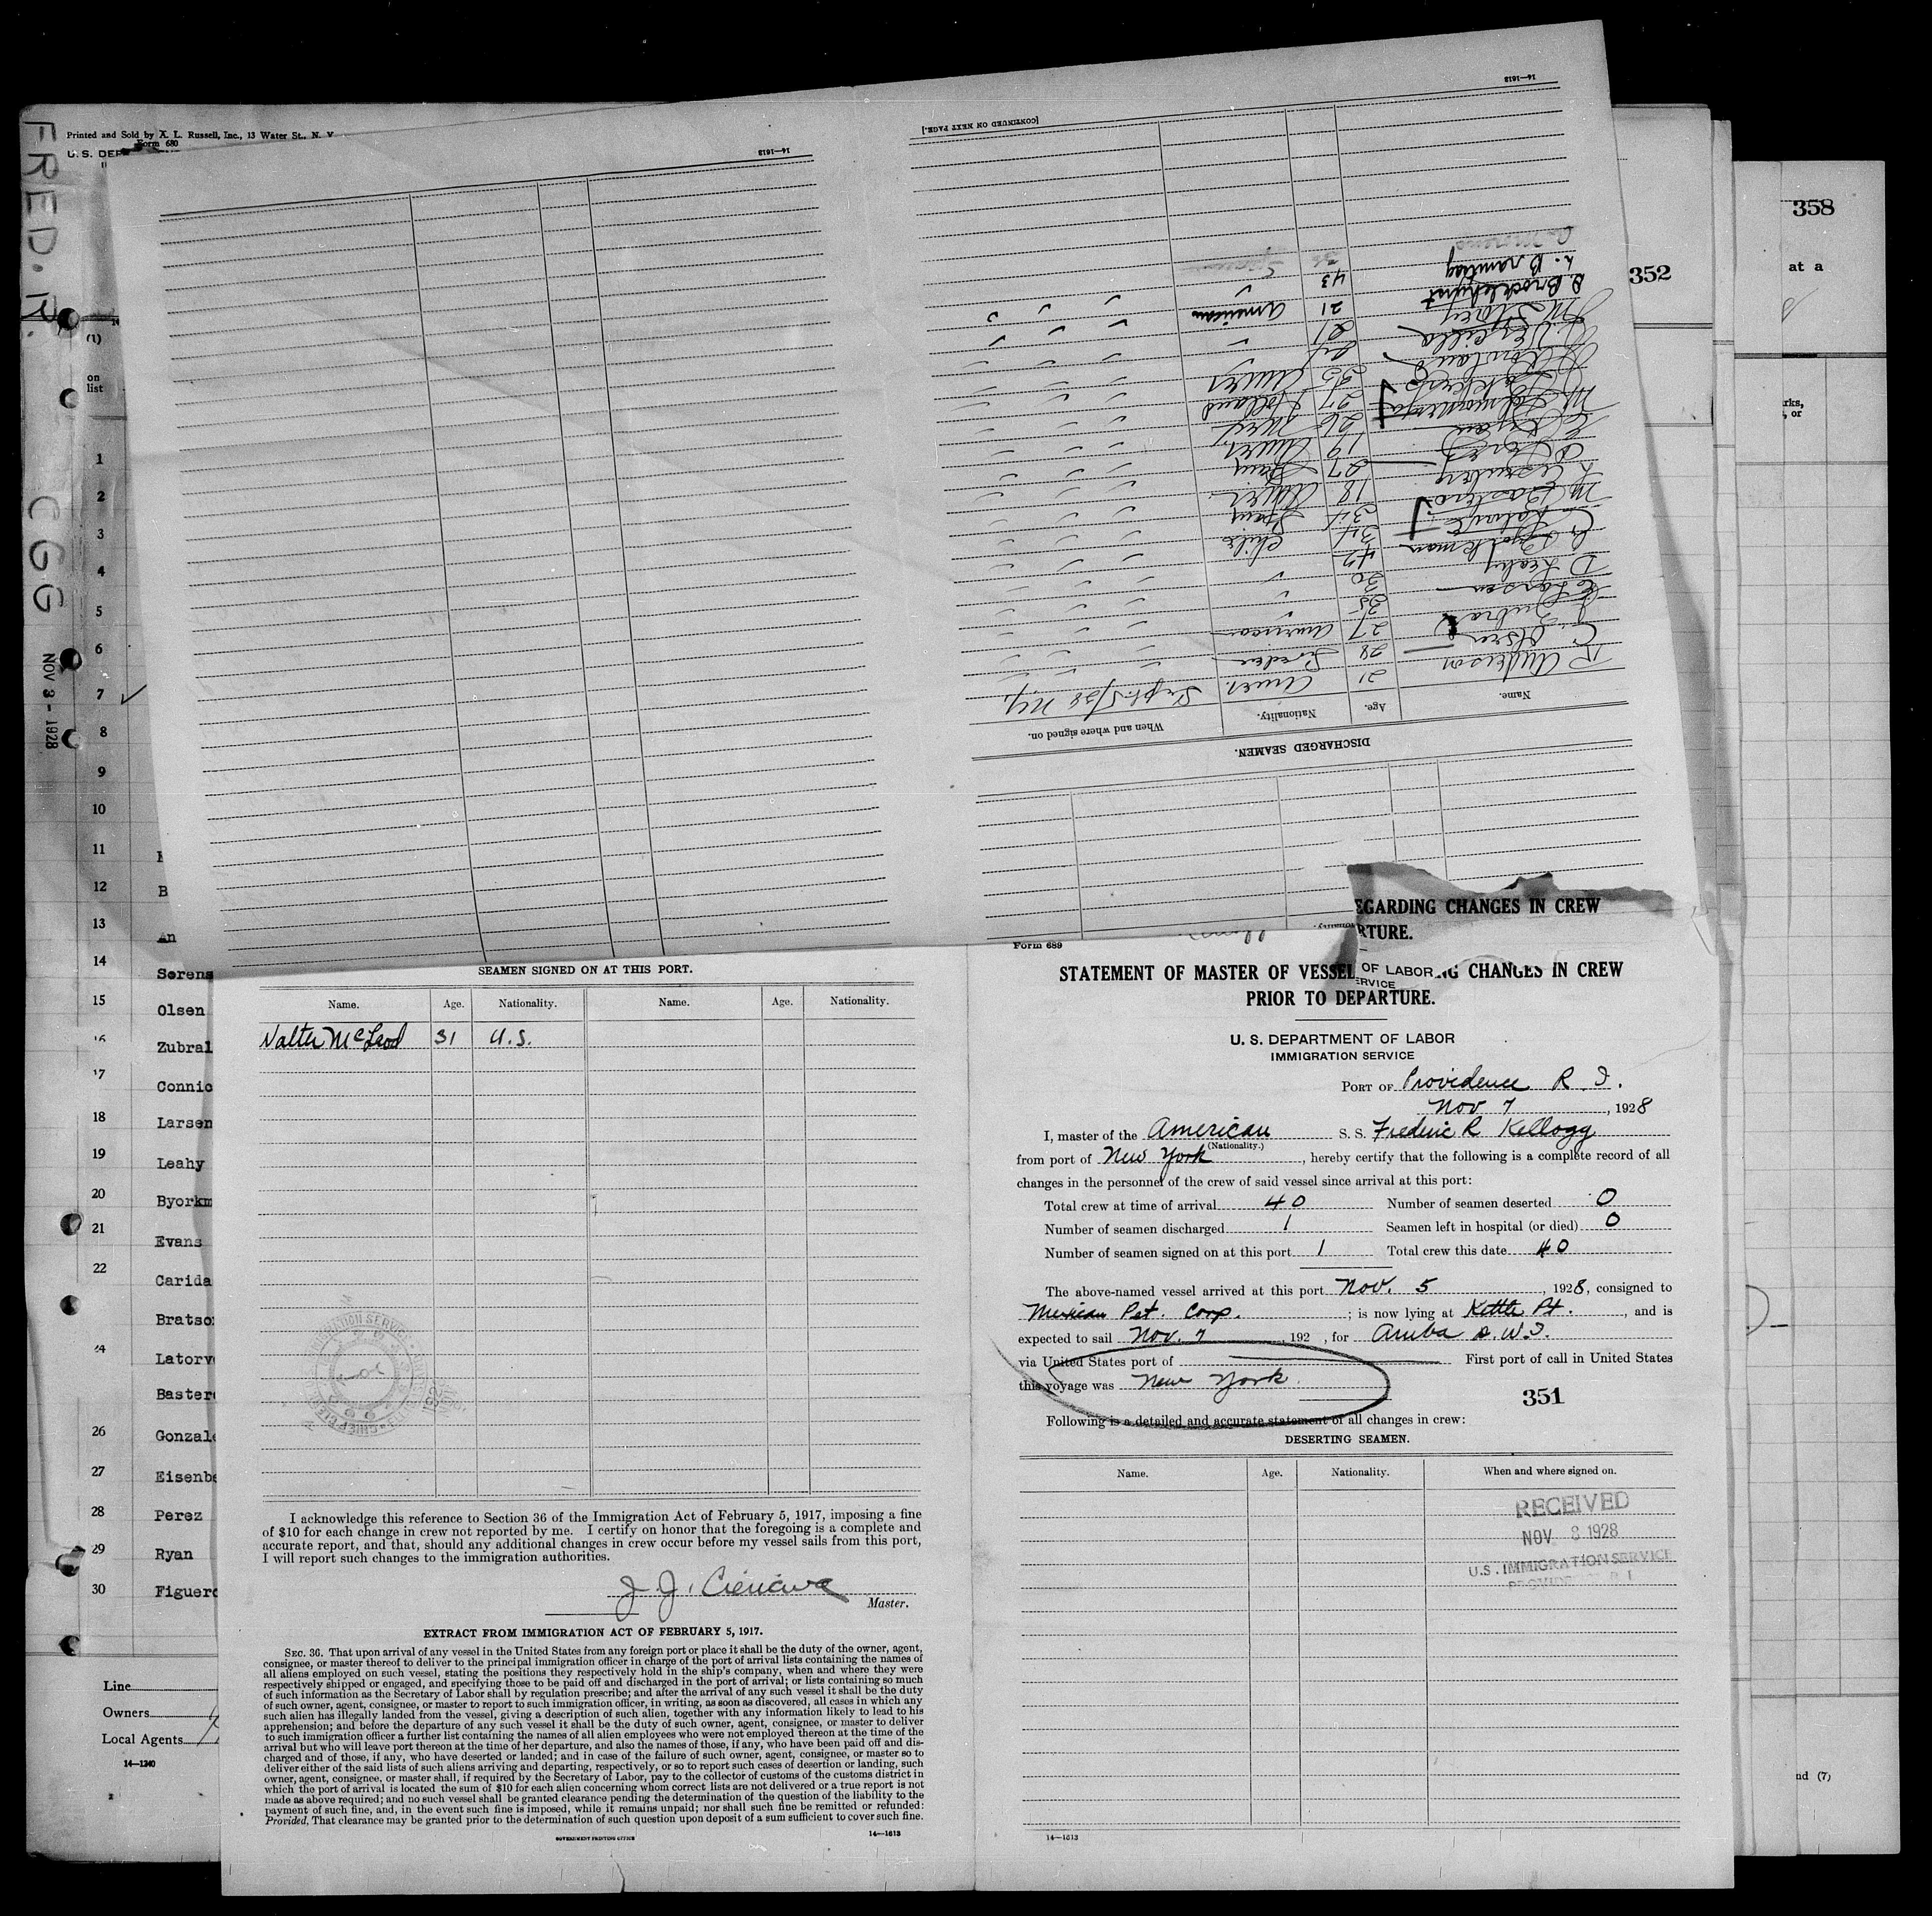 FRED. R.
CGG
NOV 3 - 1928
Printed and Sold by X. L. Russell, Inc., 13 Water St., N. Y
Form 680
U. S. DEP
(1)
on
list
1
2
3
4
5
6
7 ✓
8
9
10
11
12 B
13 An
14 Sørens
15 Olsen
16 Zubral
17 Connic
18 Larsen
19 Leahy
20 Byorkm
21 Evans
22 Carida
Bratso
24 Latorv
Baster
26 Gonzale
27 Eisenbe
28 Perez
29 Ryan
30 Figuero
Line
Owners
Local Agents
14—1240
14—1613
14—1613
[CONTINUED ON NEXT PAGE.]
DISCHARGED SEAMEN.
Name. Age. Nationality. When and where signed on.
R Anderson 21 Amer. Sept. 5/28 N.Y.
C. Olsen 28 Sweden
J. Zubral 27 American
E Larsen 35
D Leahy 30
G Bjorkman 42
34 Chile
M Bastero 34 Spain
L Eisenberg 18 Amer.
27 Spain
E Ryan 19 Amer
26
27 Holland
25 Amer
21
M Stacey 21 American
B. Brocklehurst 43
L. Bramley
EGARDING CHANGES IN CREW
RTURE.
OF LABOR
ERVICE
SEAMEN SIGNED ON AT THIS PORT.
Name. Age. Nationality. Name. Age. Nationality.
Walter McLeod 31 U.S.
I acknowledge this reference to Section 36 of the Immigration Act of February 5, 1917, imposing a fine
of $10 for each change in crew not reported by me. I certify on honor that the foregoing is a complete and
accurate report, and that, should any additional changes in crew occur before my vessel sails from this port,
I will report such changes to the immigration authorities.
J. J.
Master.
EXTRACT FROM IMMIGRATION ACT OF FEBRUARY 5, 1917.
SEC. 36. That upon arrival of any vessel in the United States from any foreign port or place it shall be the duty of the owner, agent,
consignee, or master thereof to deliver to the principal immigration officer in charge of the port of arrival lists containing the names of
all aliens employed on such vessel, stating the positions they respectively hold in the ship's company, when and where they were
respectively shipped or engaged, and specifying those to be paid off and discharged in the port of arrival; or lists containing so much
of such information as the Secretary of Labor shall by regulation prescribe; and after the arrival of any such vessel it shall be the duty
of such owner, agent, consignee, or master to report to such immigration officer, in writing, as soon as discovered, all cases in which any
such alien has illegally landed from the vessel, giving a description of such alien, together with any information likely to lead to his
apprehension; and before the departure of any such vessel it shall be the duty of such owner, agent, consignee, or master to deliver
to such immigration officer a further list containing the names of all alien employees who were not employed thereon at the time of the
arrival but who will leave port thereon at the time of her departure, and also the names of those, if any, who have been paid off and dis-
charged and of those, if any, who have deserted or landed; and in case of the failure of such owner, agent, consignee, or master so to
deliver either of the said lists of such aliens arriving and departing, respectively, or so to report such cases of desertion or landing, such
owner, agent, consignee, or master shall, if required by the Secretary of Labor, pay to the collector of customs of the customs district in
which the port of arrival is located the sum of $10 for each alien concerning whom correct lists are not delivered or a true report is not
made as above required; and no such vessel shall be granted clearance pending the determination of the question of the liability to the
payment of such fine, and, in the event such fine is imposed, while it remains unpaid; nor shall such fine be remitted or refunded:
Provided, That clearance may be granted prior to the determination of such question upon deposit of a sum sufficient to cover such fine.
GOVERNMENT PRINTING OFFICE
14—1613
Form 689
STATEMENT OF MASTER OF VESSEL NG CHANGES IN CREW
PRIOR TO DEPARTURE.
U. S. DEPARTMENT OF LABOR
IMMIGRATION SERVICE
PORT OF Providence R. I.
Nov 7, 1928
I, master of the American S. S. Frederic R Kellogg
(Nationality.)
from port of New York, hereby certify that the following is a complete record of all
changes in the personnel of the crew of said vessel since arrival at this port:
Total crew at time of arrival 40 Number of seamen deserted 0
Number of seamen discharged 1 Seamen left in hospital (or died) 0
Number of seamen signed on at this port 1 Total crew this date 40
The above-named vessel arrived at this port Nov. 5, 1928, consigned to
Mexican Pet. Corp.; is now lying at Kettle Pt., and is
expected to sail Nov. 7, 192 , for Aruba D. W. I.
via United States port of First port of call in United States
this voyage was New York
351
Following is a detailed and accurate statement of all changes in crew:
DESERTING SEAMEN.
Name. Age. Nationality. When and where signed on.
RECEIVED
NOV 8 1928
U.S. IMMIGRATION SERVICE
PROVIDENCE R I
14—1613
352
358
at a
rks,
, or
nd (7)